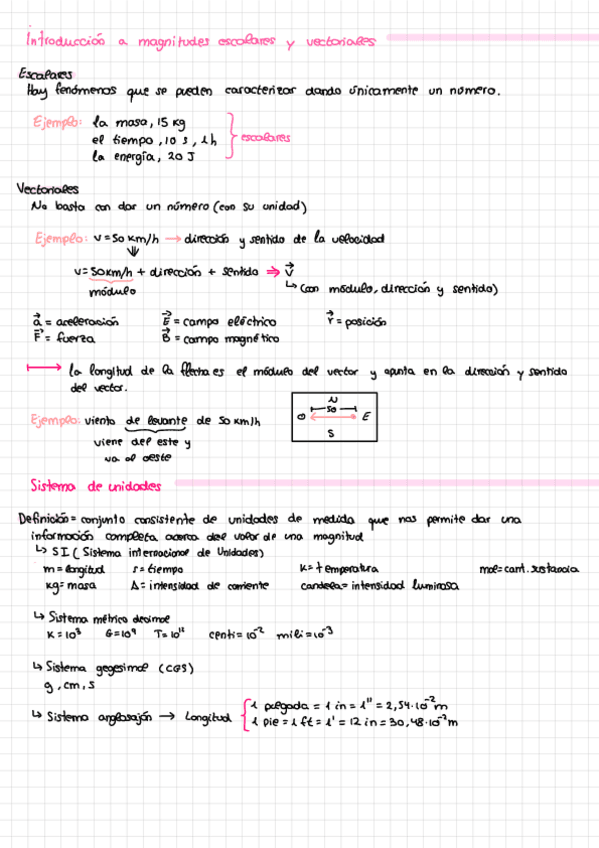 Introducción a magnitudes escalares y vectoriales
Escalares
Hay fenómenos que se pueden caracterizar dando únicamente un número.
Ejemplo: la masa, 15 kg
el tiempo, 10 s, 1h
la energía, 20 J
escalares
Vectoriales
No basta con dar un número (con su unidad)
Ejemplo: v = 50 km/h → dirección y sentido de la velocidad
⇓
v = 50 km/h + dirección + sentido ⇒ v⃗
módulo
↳ (con módulo, dirección y sentido)
a⃗ = aceleración E⃗ = campo eléctrico r⃗ = posición
F⃗ = fuerza B⃗ = campo magnético
la longitud de la flecha es el módulo del vector y apunta en la dirección y sentido
del vector.
Ejemplo: viento de levante de 50 km/h
viene del este y
va al oeste
N
50
O E
S
Sistema de unidades
Definición = conjunto consistente de unidades de medida que nos permite dar una
información completa acerca del valor de una magnitud
↳ SI (Sistema internacional de Unidades)
m = longitud s = tiempo K = temperatura mol = cant. sustancia
kg = masa A = intensidad de corriente candela = intensidad luminosa
↳ Sistema métrico decimal
K = 10³ G = 10⁹ T = 10¹² centi = 10⁻² mili = 10⁻³
↳ Sistema gegesimal (CGS)
g, cm, s
↳ Sistema anglosajón → Longitud
1 pulgada = 1 in = 1'' = 2,54·10⁻² m
1 pie = 1 ft = 1' = 12 in = 30,48·10⁻² m